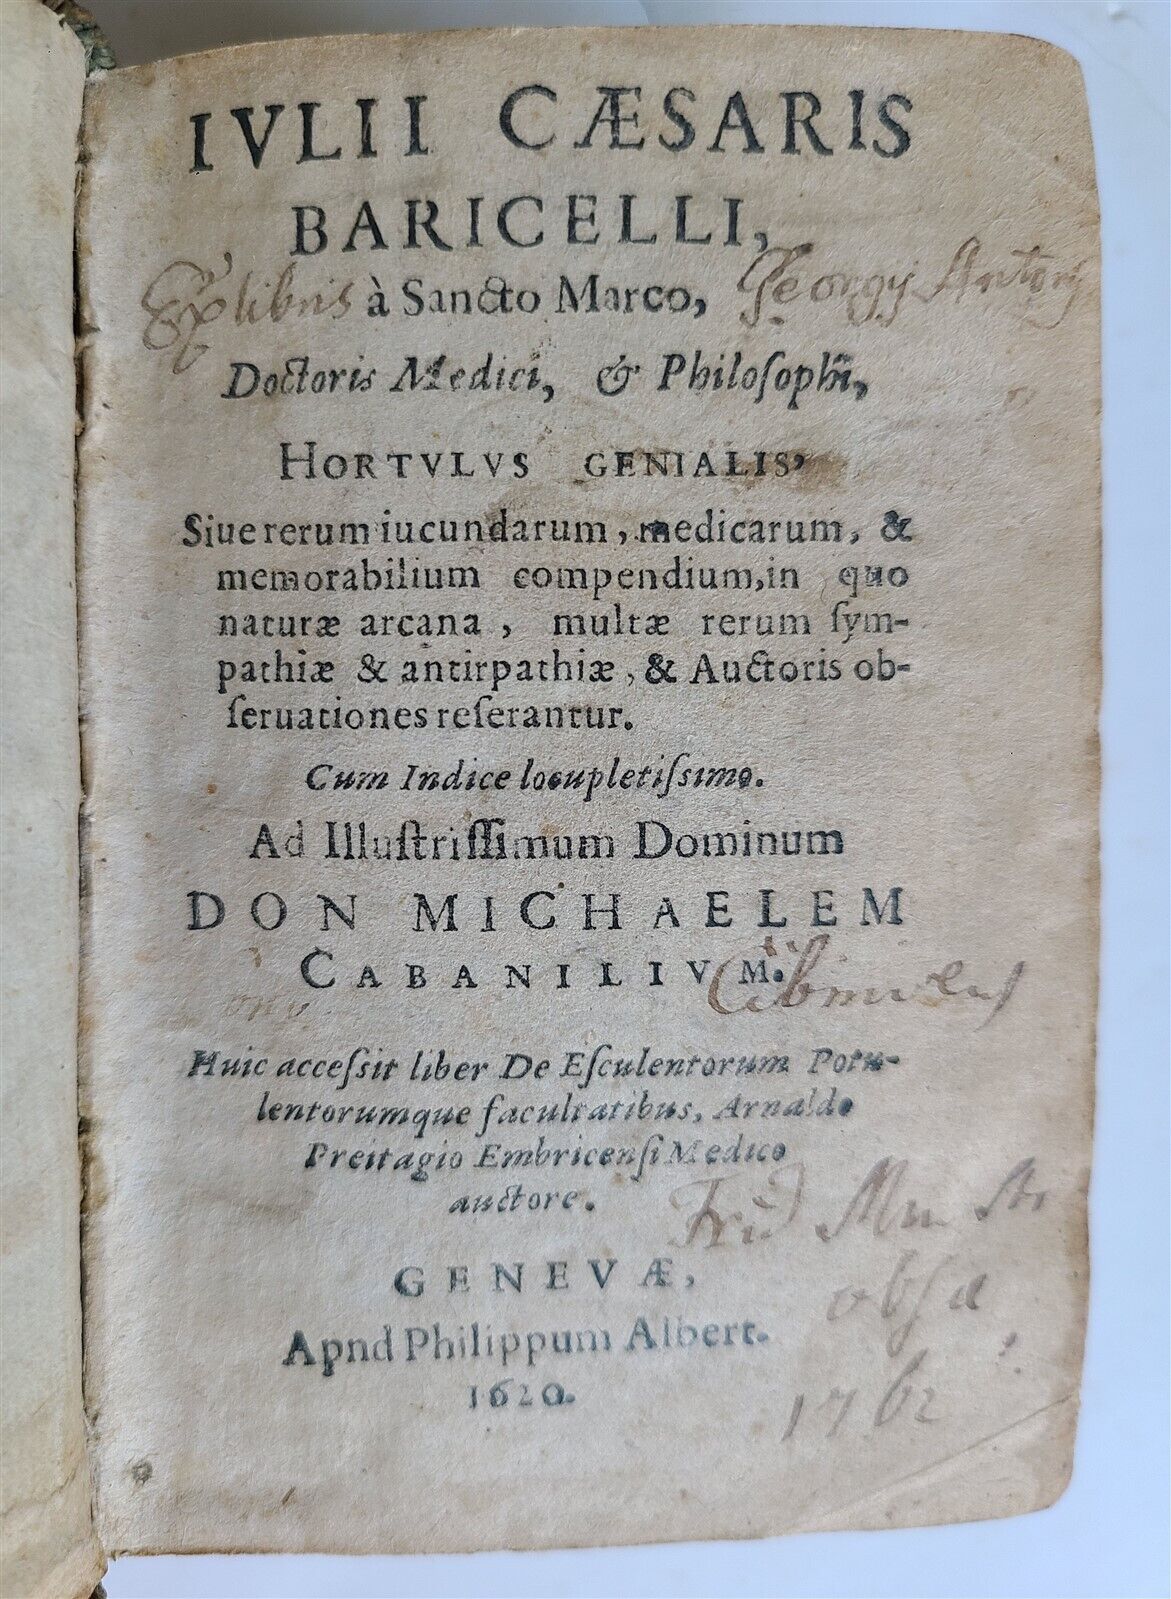 IVLII CÆSARIS
BARICELLI,
Ex libris à Sancto Marco, Georgij Antonij
Doctoris Medici, & Philosophi,
HORTVLVS GENIALIS,
Siue rerum iucundarum, medicarum, &
memorabilium compendium, in quo
naturæ arcana, multæ rerum ſym-
pathiæ & antirpathiæ, & Auctoris ob-
ſeruationes reſerantur.
Cum Indice locupletiſsimo.
Ad Illuſtriſſimum Dominum
DON MICHAELEM
CABANILIVM.
Huic acceſsit liber De Eſculentorum Potu-
lentorumque facultatibus, Arnaldo
Freitagio Embricenſi Medico
auctore.
GENEVÆ,
Apnd Philippum Albert.
1620.
1762